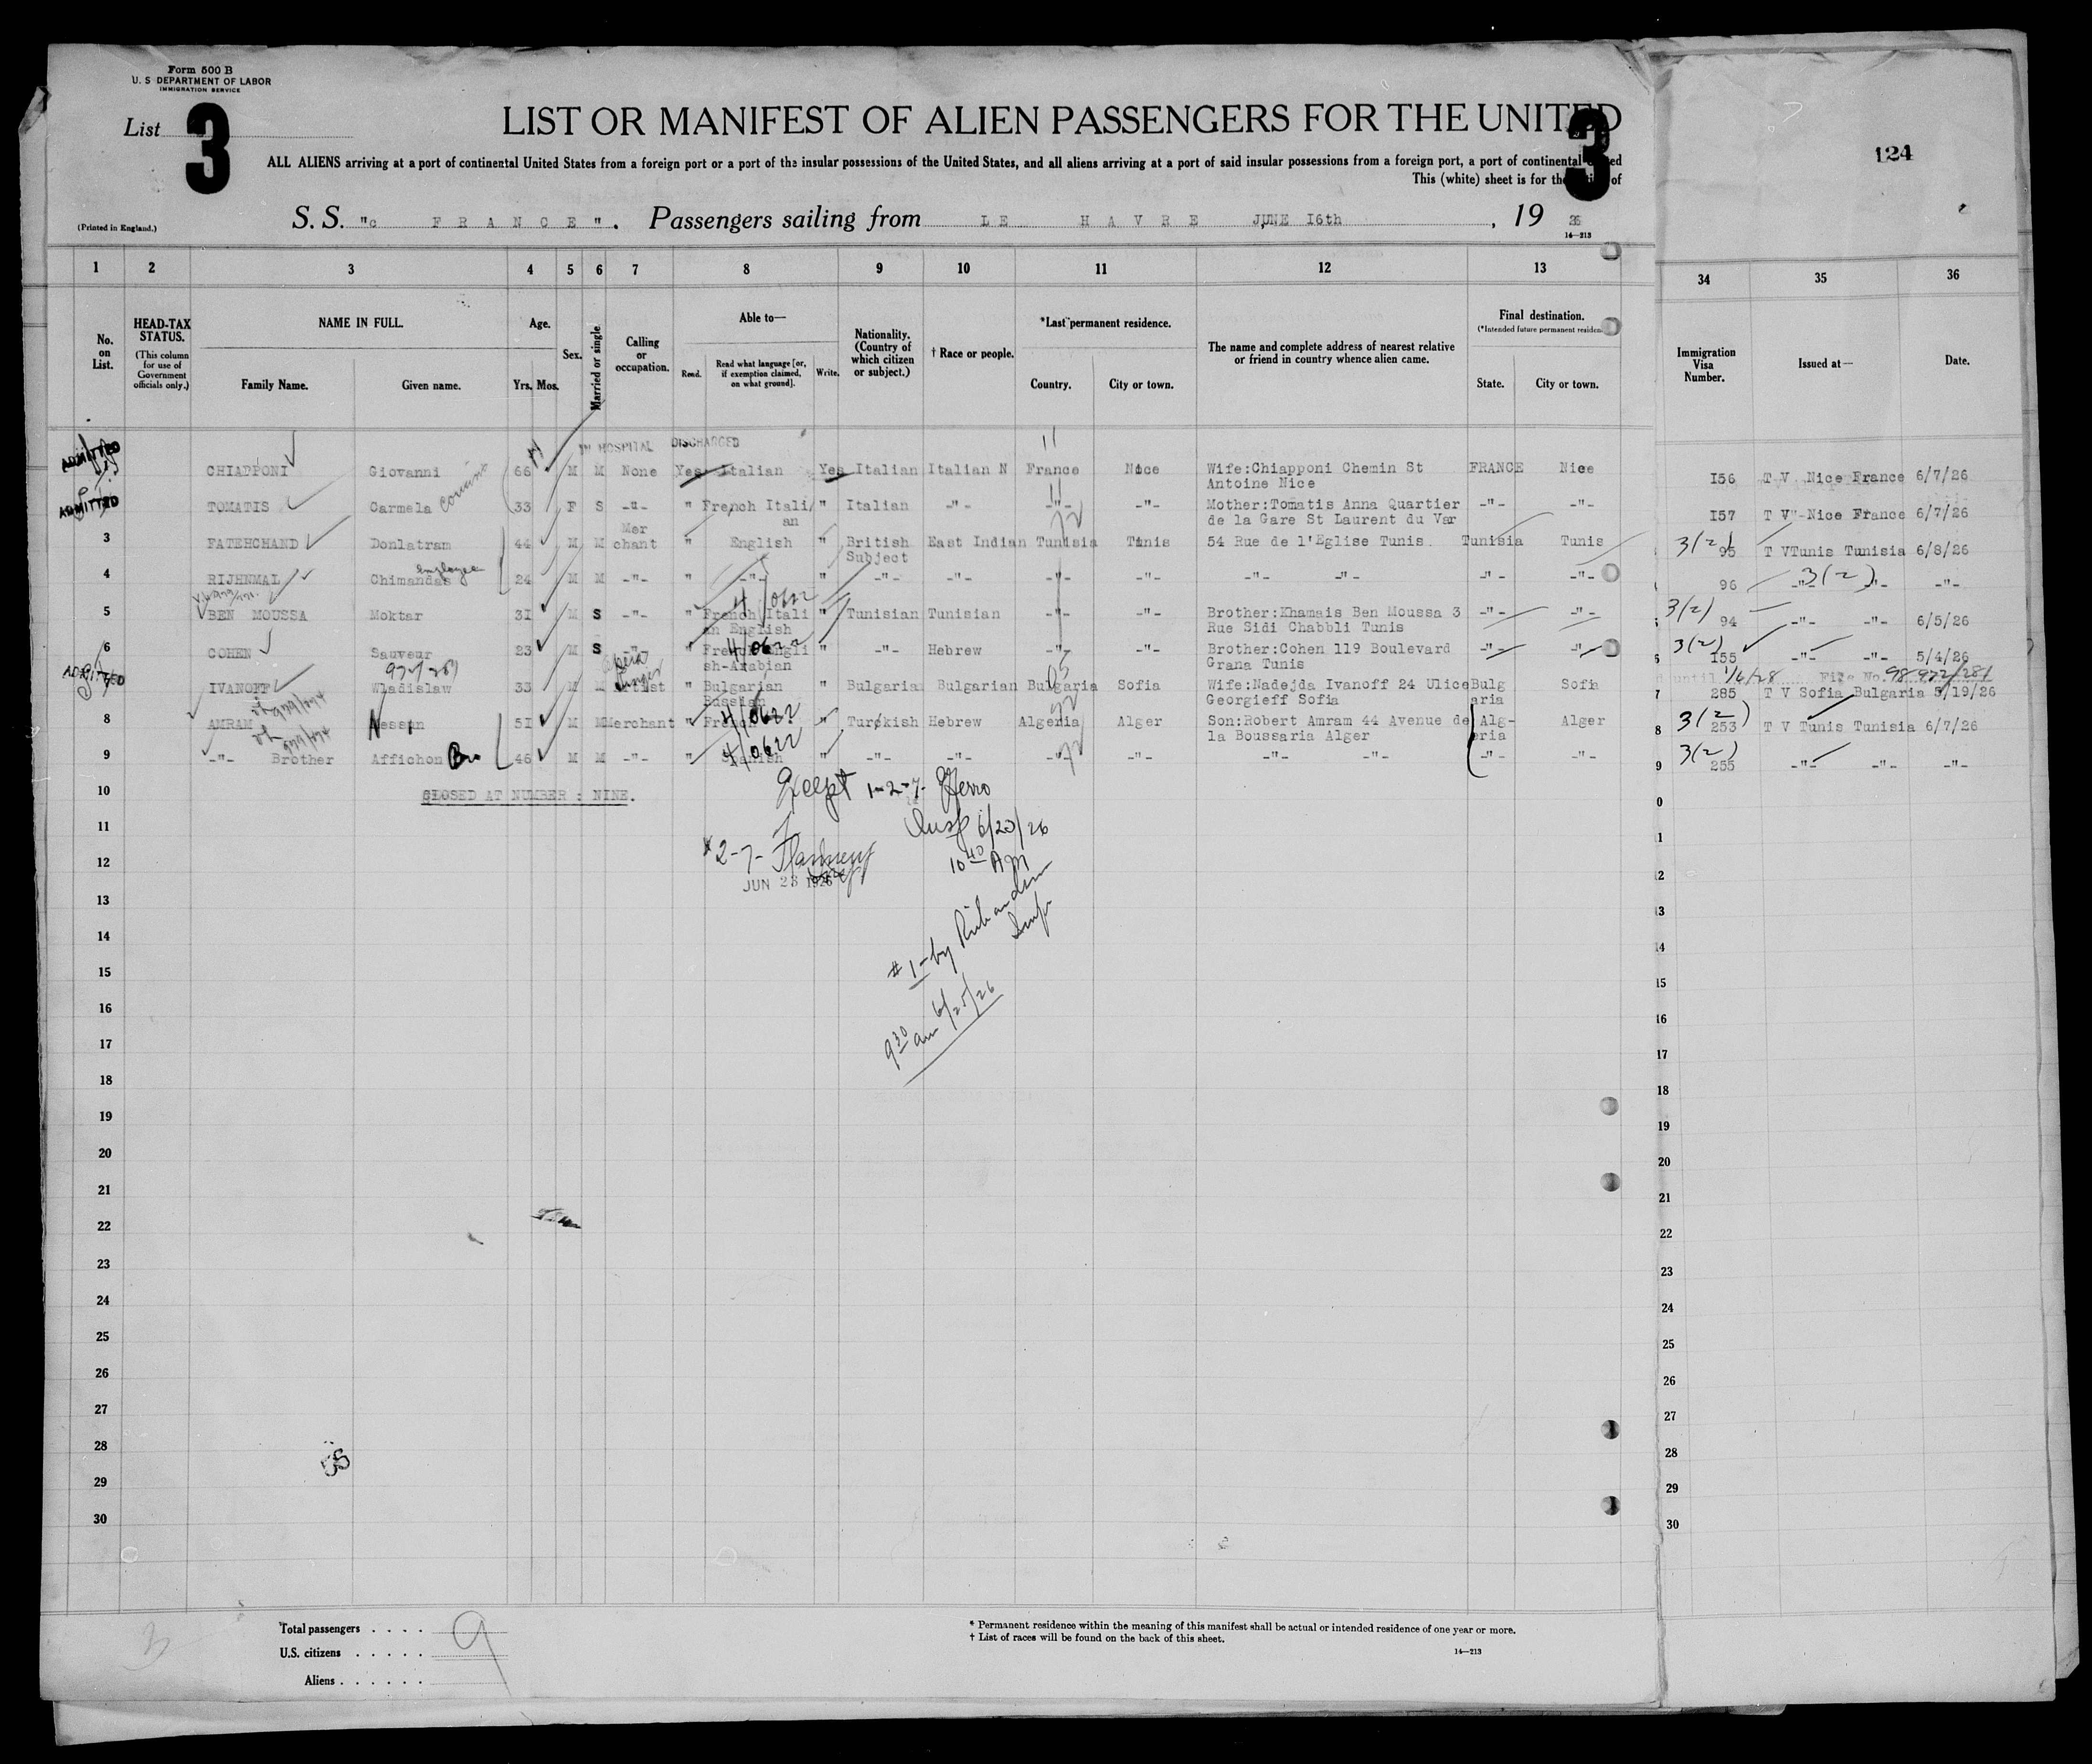 Form 500 B
U. S DEPARTMENT OF LABOR
IMMIGRATION SERVICE
List 3
LIST OR MANIFEST OF ALIEN PASSENGERS FOR THE UNITED
3
124
ALL ALIENS arriving at a port of continental United States from a foreign port or a port of the insular possessions of the United States, and all aliens arriving at a port of said insular possessions from a foreign port, a port of continental
This (white) sheet is for the
of
(Printed in England.)
S. S. "c FRANCE". Passengers sailing from LE HAVRE JUNE I6th, 19 26
14—213
1 2 3 4 5 6 7 8 9 10 11 12 13 34 35 36
No. on List.
HEAD-TAX STATUS.
(This column for use of Government officials only.)
NAME IN FULL.
Family Name. Given name.
Age.
Yrs. Mos.
Sex.
Married or single
Calling or occupation.
Able to—
Read. Read what language [or, if exemption claimed, on what ground]. Write.
Nationality. (Country of which citizen or subject.)
† Race or people.
*Last permanent residence.
Country. City or town.
The name and complete address of nearest relative or friend in country whence alien came.
Final destination.
(*Intended future permanent residen
State. City or town.
Immigration Visa Number.
Issued at—
Date.
IN HOSPITAL DISCHARGED
ADMITTED CHIAPPONI Giovanni 66 M M None Yes Italian Yes Italian Italian N France Nice Wife:Chiapponi Chemin St FRANCE Nice I56 T V Nice France 6/7/26
Antoine Nice
ADMITTED TOMATIS Carmela cousins 33 F S -"- " French Itali " Italian -"- -"- -"- Mother:Tomatis Anna Quartier -"- -"- I57 T V"-Nice France 6/7/26
an
de la Gare St Laurent du Var
Mer
3 FATEHCHAND Donlatram 44 M M chant " English " British East Indian Tunisia Tunis 54 Rue de l'Eglise Tunis Tunisia Tunis 3(2) 95 T VTunis Tunisia 6/8/26
Subject
employee
4 RIJHNMAL Chimandas 24 M M -"- " -"- " -"- -"- -"- -"- -"- -"- -"- -"- 96 3(2) -"- -"-
5 BEN MOUSSA Moktar 3I M S -"- " French Itali " Tunisian Tunisian -"- -"- Brother:Khamais Ben Moussa 3 -"- -"- 3(2) 94 -"- -"- 6/5/26
an English
Rue Sidi Chabbli Tunis
6 COHEN Sauveur 23 M S -"- " French Engli " -"- Hebrew -"- -"- Brother:Cohen 119 Boulevard -"- -"- 3(2) I55 -"- -"- 5/4/26
sh-Arabian
Grana Tunis
until 1/6/28 File No. 98 922/281
opera singer
ADMITTED IVANOFF Wladislaw 33 M M Artist " Bulgarian " Bulgaria Bulgarian Bulgaria Sofia Wife:Nadejda Ivanoff 24 Ulice Bulg Sofia 7 285 T V Sofia Bulgaria 5/19/26
Russian
Georgieff Sofia aria
8 AMRAM Nessim 5I M M Merchant " French " Turkish Hebrew Algeria Alger Son:Robert Amram 44 Avenue de Alg- Alger 3(2) 8 253 T V Tunis Tunisia 6/7/26
la Boussaria Alger eria
9 -"- Brother Affichon Bro 46 M M -"- " Spanish " -"- -"- -"- -"- -"- -"- -"- -"- 3(2) 9 255 -"- -"- -"-
4/0622
4/0622
10 CLOSED AT NUMBER : NINE.
Except 1-2-7- Ferro
Insp 6/23/26
10 40 AM
2-7-
JUN 23 1926
# 1-by Richardson
Insp
9 30 am 6/25/26
11
12
13
14
15
16
17
18
19
20
21
22
23
24
25
26
27
28
29
30
Total passengers . . . . 9
U.S. citizens . . . . .
Aliens . . . . . .
* Permanent residence within the meaning of this manifest shall be actual or intended residence of one year or more.
† List of races will be found on the back of this sheet.
14—213